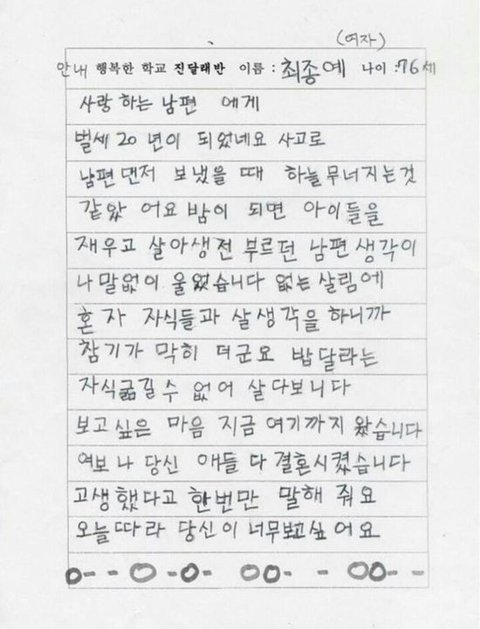 (여자)
안내 행복한 학교 진달래반 이름 : 최종예 나이 : 76세
사랑 하는 남편 에게
벌세 20 년이 되었네요 사고로
남편 댄저 보냈을 때 하늘 무너지는것
같았 어요 밤이 되면 아이들을
재우고 살아생전 부르던 남편 생각이
나 말없이 울었습니다 없는 살림에
혼 자 자식들과 살생각을 하니까
참기가 막히 더군요 밥달라는
자식굶길수 없어 살 다보니다
보고싶은 마음 지금 여기까지 왔습니다
여보 나 당신 애들 다 결혼시켰습니다
고생했다고 한번만 말해 줘요
오늘따라 당신이 너무보고싶 어요